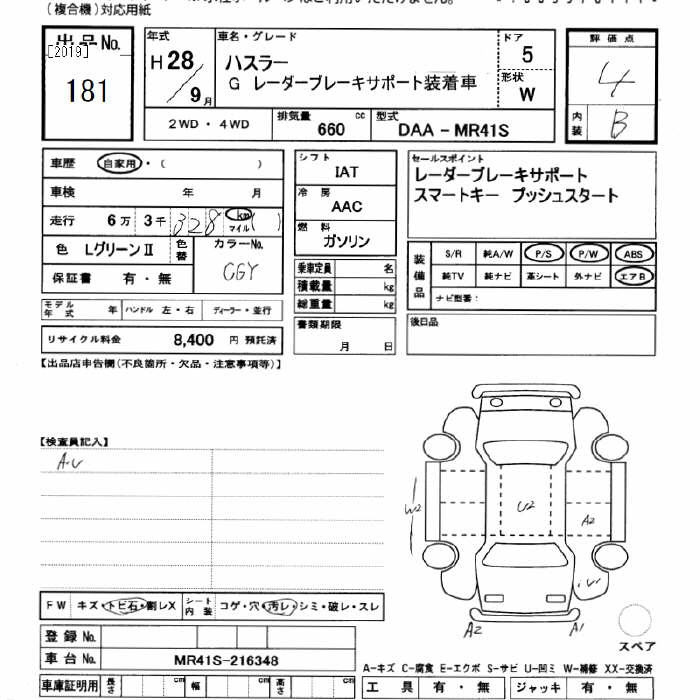 (複合機)対応用紙
出品No.
[2019]
181
年式
H28/9月
車名・グレード
ハスラー
G レーダーブレーキサポート装着車
ドア
5
形状
W
評価点
4
内装
B
2WD・4WD
排気量 660 cc
型式 DAA-MR41S
車歴 自家用・( )
車検 年 月
走行 6万 3千 328 km マイル ( )
色 LグリーンⅡ 色替 カラーNo. CGY
保証書 有・無
モデル年式 年 ハンドル 左・右 ディーラー・並行
リサイクル料金 8,400 円 預託済
シフト
IAT
冷房
AAC
燃料
ガソリン
乗車定員 名
積載量 kg
総重量 kg
書類期限
月 日
セールスポイント
レーダーブレーキサポート
スマートキー プッシュスタート
装備品
S/R 純A/W P/S P/W ABS
純TV 純ナビ 革シート 外ナビ エアB
ナビ型番:
後日品
【出品店申告欄(不良箇所・欠品・注意事項等)】
【検査員記入】
A.U
W2
U2
A2
A2
A1
スペア
FW キズ・トビ石・割レX シート内装 コゲ・穴・汚レ・シミ・破レ・スレ
登録No.
車台No. MR41S-216348
車庫証明用 長さ cm 幅 cm 高さ cm
A-キズ C-腐食 E-エクボ S-サビ U-凹ミ W-補修 XX-交換済
工具 有・無 ジャッキ 有・無